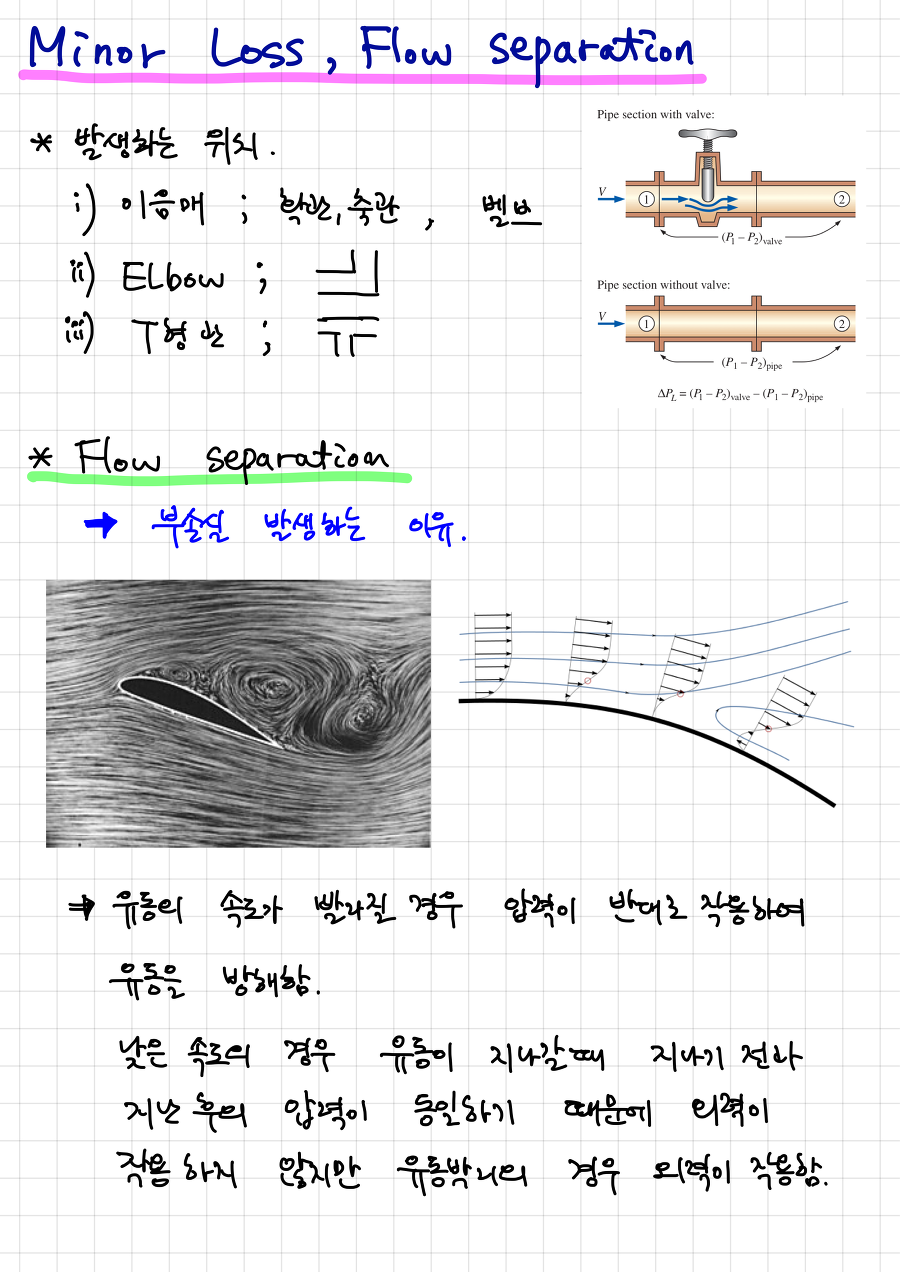 Minor Loss, Flow separation
* 발생하는 위치.
i) 이음매 ; 확관, 축관, 벨브
ii) ELbow ;
iii) T형관 ;
Pipe section with valve:
V
1
2
(P1 – P2)valve
Pipe section without valve:
V
1
2
(P1 – P2)pipe
ΔPL = (P1 – P2)valve – (P1 – P2)pipe
* Flow separation
→ 부손실 발생하는 이유.
⇒ 유동의 속도가 빨라질 경우 압력이 반대로 작용하여
유동을 방해함.
낮은 속도의 경우 유동이 지나갈 때 지나기 전과
지난 후의 압력이 동일하기 때문에 외력이
작용하지 않지만 유동박리의 경우 외력이 작용함.